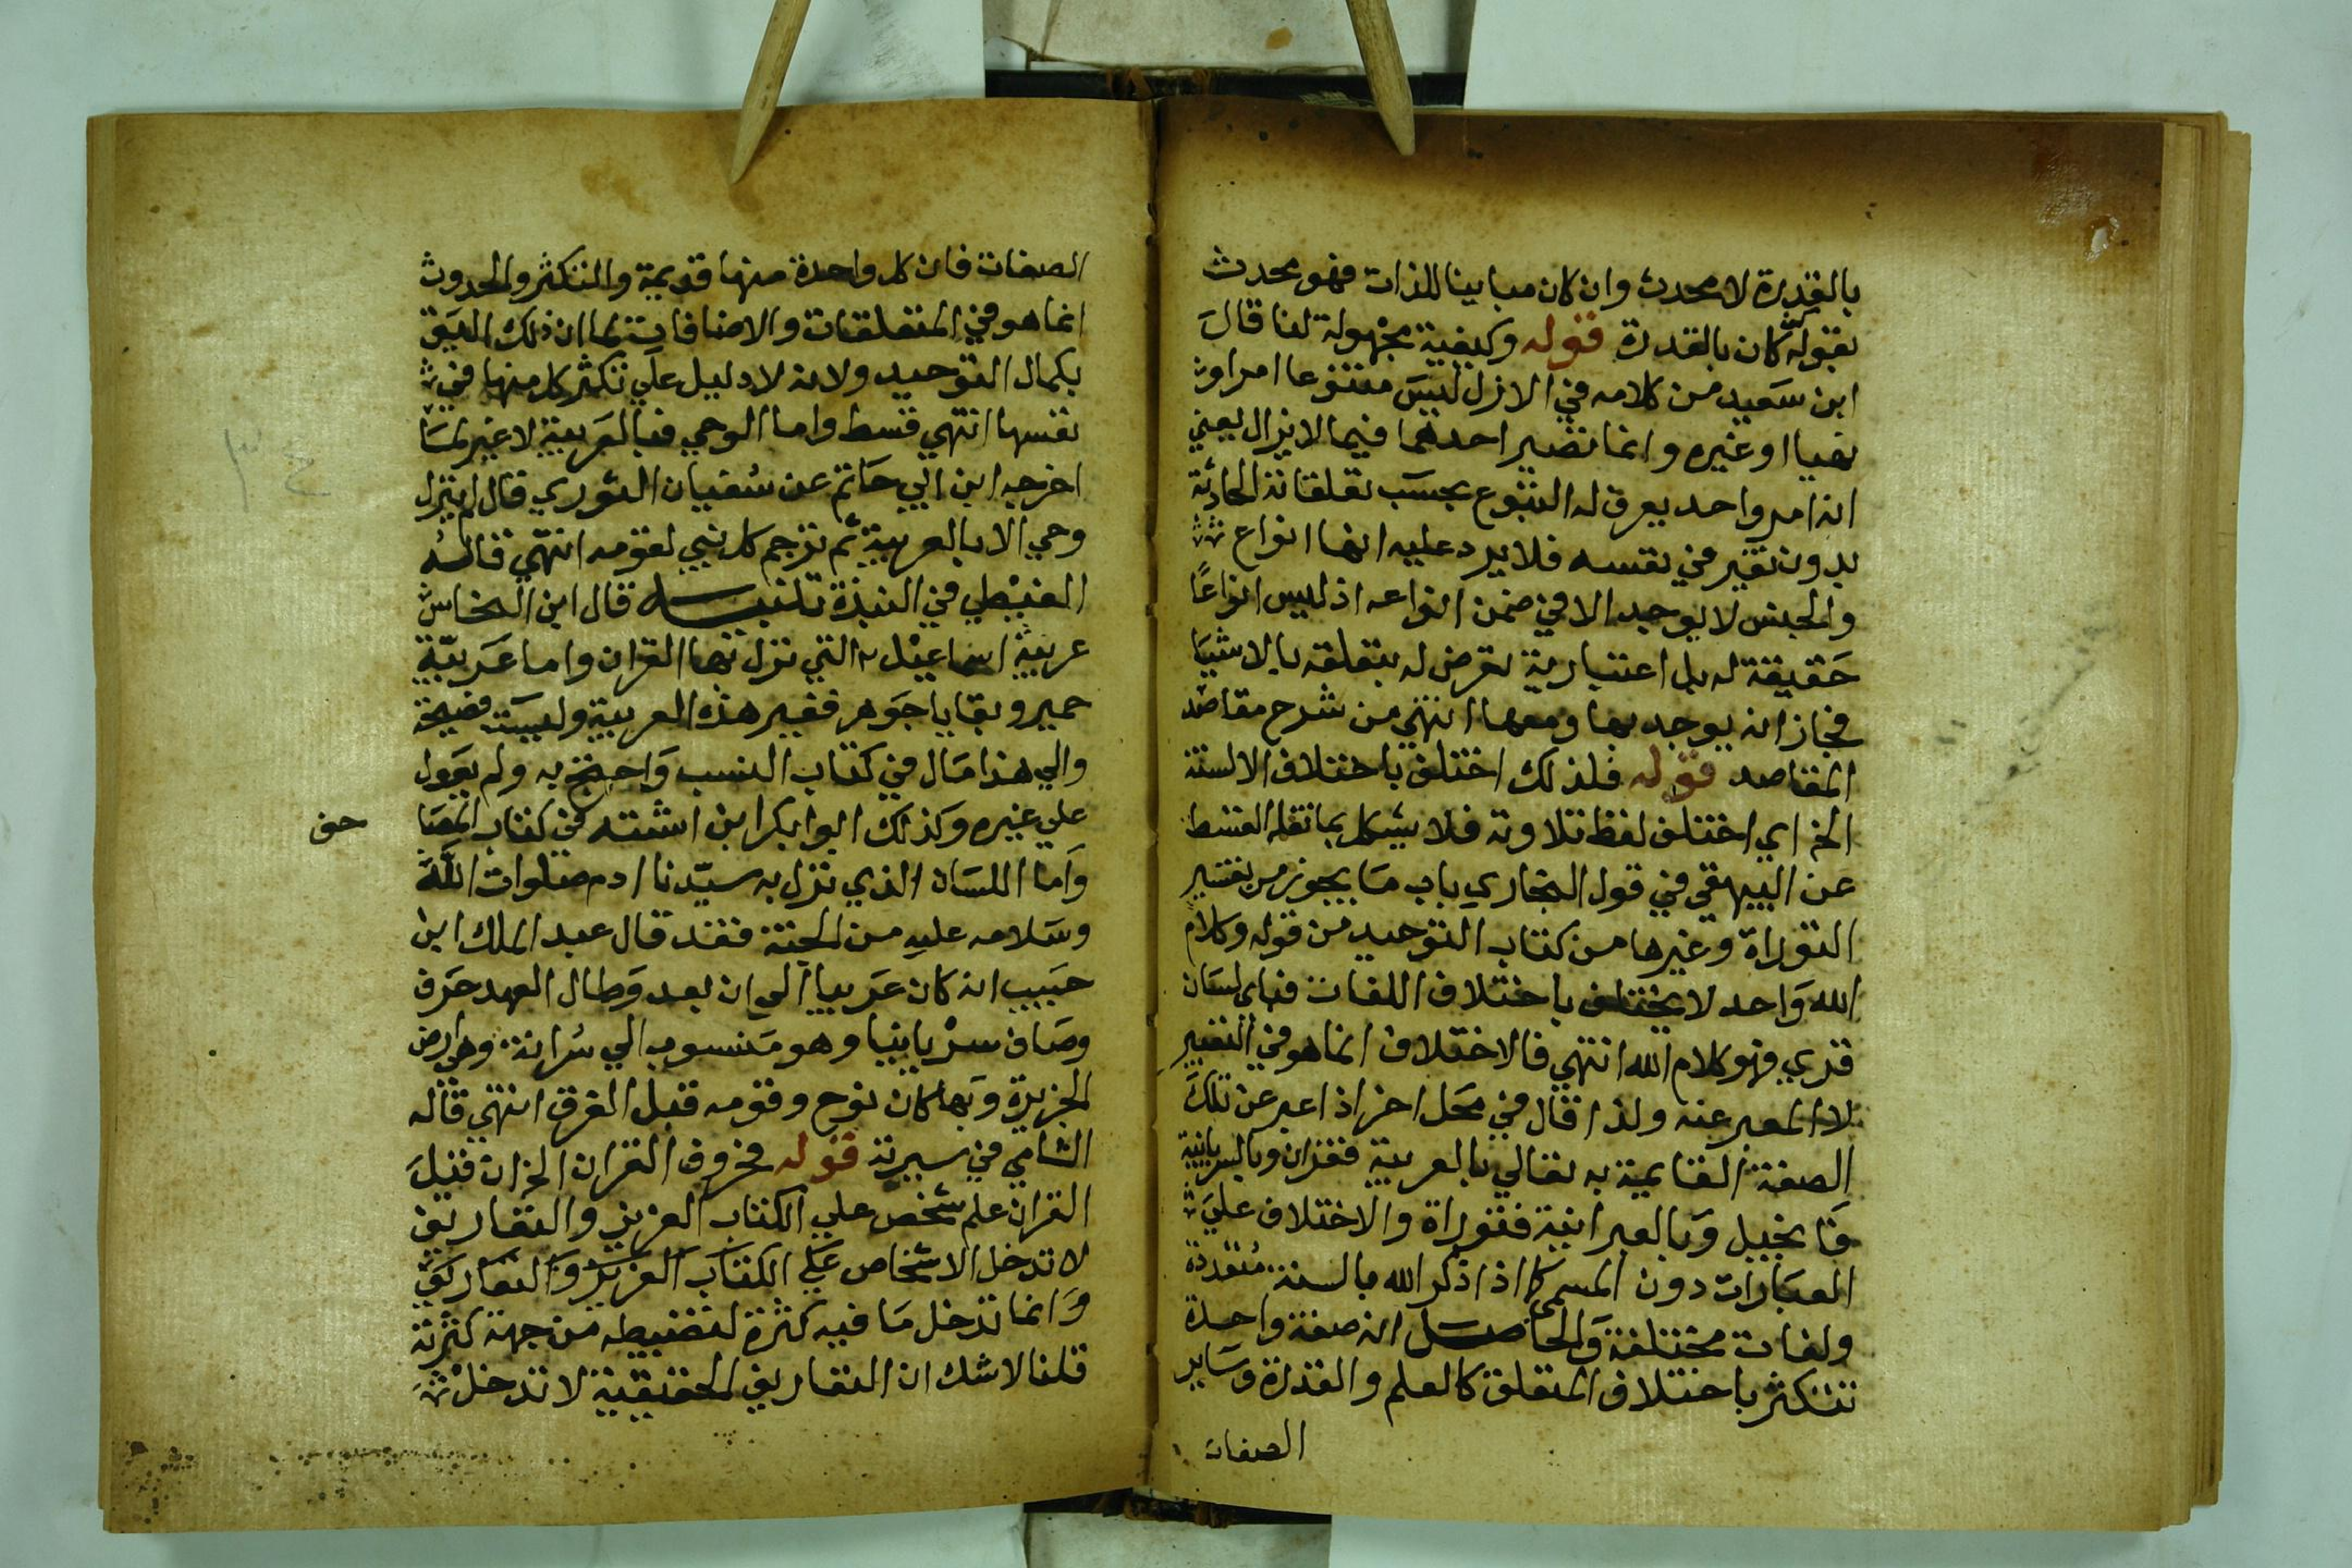 بالقدرة لا محدث وان كان مباينا للذات فهو محدث
بقوله كن كان بالقدرة قوله وكيفية مجهولة لنا قال
ابن سعيد من كلامه في الازل ليس متنوعا امرا او
نهيا او غيره وانما تصير احدهما فيما لا يزال يعني
انه امر واحد يعرض له التنوع بحسب تعلقاته الحادثة
بدون تغير في نفسه فلا يرد عليه انها انواع
والجنس لا يوجد الا في ضمن انواعه اذ ليس انواعًا
حقيقة له بل اعتبارية تعرض له بتعلقه بالاشيا
فجاز انه يوجد بها ومعها انتهي من شرح مقاصد
المقاصد قوله فلذلك اختلف باختلاف الالسنة
الخ اي اختلف لفظ تلاوته فلا يشكل بما نقله القسط
عن البيهقي في قول البخاري باب ما يجوز من تفسير
التوراة وغيرها من كتاب التوحيد من قوله وكلام
الله واحد لا يختلف باختلاف اللغات فباي لسان
قري فهو كلام الله انتهي فالاختلاف انما هو في التعبير
لا المعبر عنه ولذا قال في محل اخر اذا عبر عن تلك
الصفة القايمة به تعالي بالعربية فقران وبالسريانية
فانجيل وبالعبرانية فتوراة والاختلاف علي
العبارات دون المسمى كما اذا ذكر الله بالسنة متعددة
ولغات مختلفة والحاصل انه صفة واحدة
تتكثر باختلاف المتعلق كالعلم والقدرة وساير
الصفات
الصفات فان كل واحدة منها قديمة والتكثر والحدوث
انما هو في المتعلقات والاضافات لما ان ذلك اليق
بكمال التوحيد ولانه لا دليل علي تكثر كل منها في
نفسها انتهي قسط واما الوحي فبالعربية لا غير لما
اخرجه ابن ابي حاتم عن سفيان الثوري قال لم ينزل
وحي الا بالعربية ثم ترجم كل نبي لقومه انتهي قاله
الغيطي في النبذة تنبيه قال ابن النحاس
عربية اسماعيل هي التي نزل بها القران واما عربية
حمير وبقايا جوهر فغير هذه العربية وليست فصيحة
والي هذا مال في كتاب النسب واحتج به ولم يعول
علي غيره وكذلك ابوا بكر ابن اشته في كتاب المصا
حف
واما اللسان الذي نزل به سيدنا ادم صلوات الله
وسلامه عليه من الجنة فقد قال عبد الملك ابن
حبيب انه كان عربيا الى ان بعد وطال العهد حرف
وصار سريانيا وهو منسوب الي سرانة وهي ارض
الجزيرة وبها كان نوح وقومه قبل الغرق انتهي قاله
الشامي في سيرته قوله فحروف القران الخ ان قيل
القران علم شخص علي الكتاب العزيز والتعاريف
لا تدخل الاشخاص علي الكتاب العزيز والتعاريف
وانما تدخل ما فيه كثرة لتضبطه من جهة كثرته
قلنا لا شك ان التعاريف الحقيقية لا تدخل